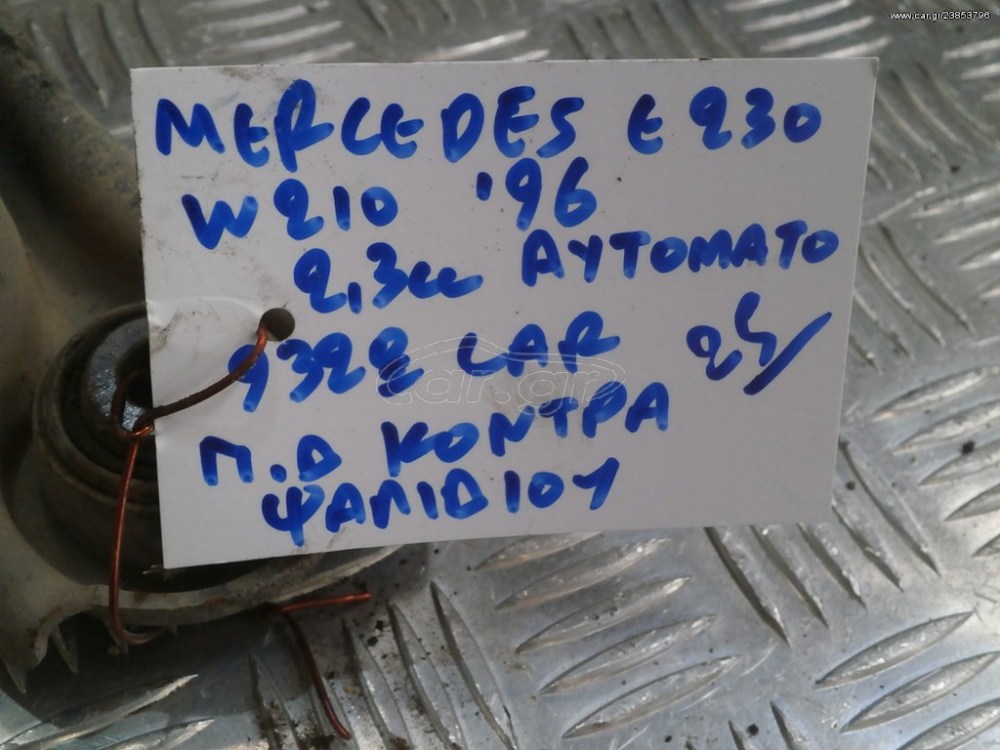 www.car.gr/23853796
MERCEDES E 230
W210 '96
2,3cc ΑΥΤΟΜΑΤΟ
9322 LAR 24/
Π.Δ ΚΟΝΤΡΑ
ΨΑΛΙΔΙΟΥ
car.gr